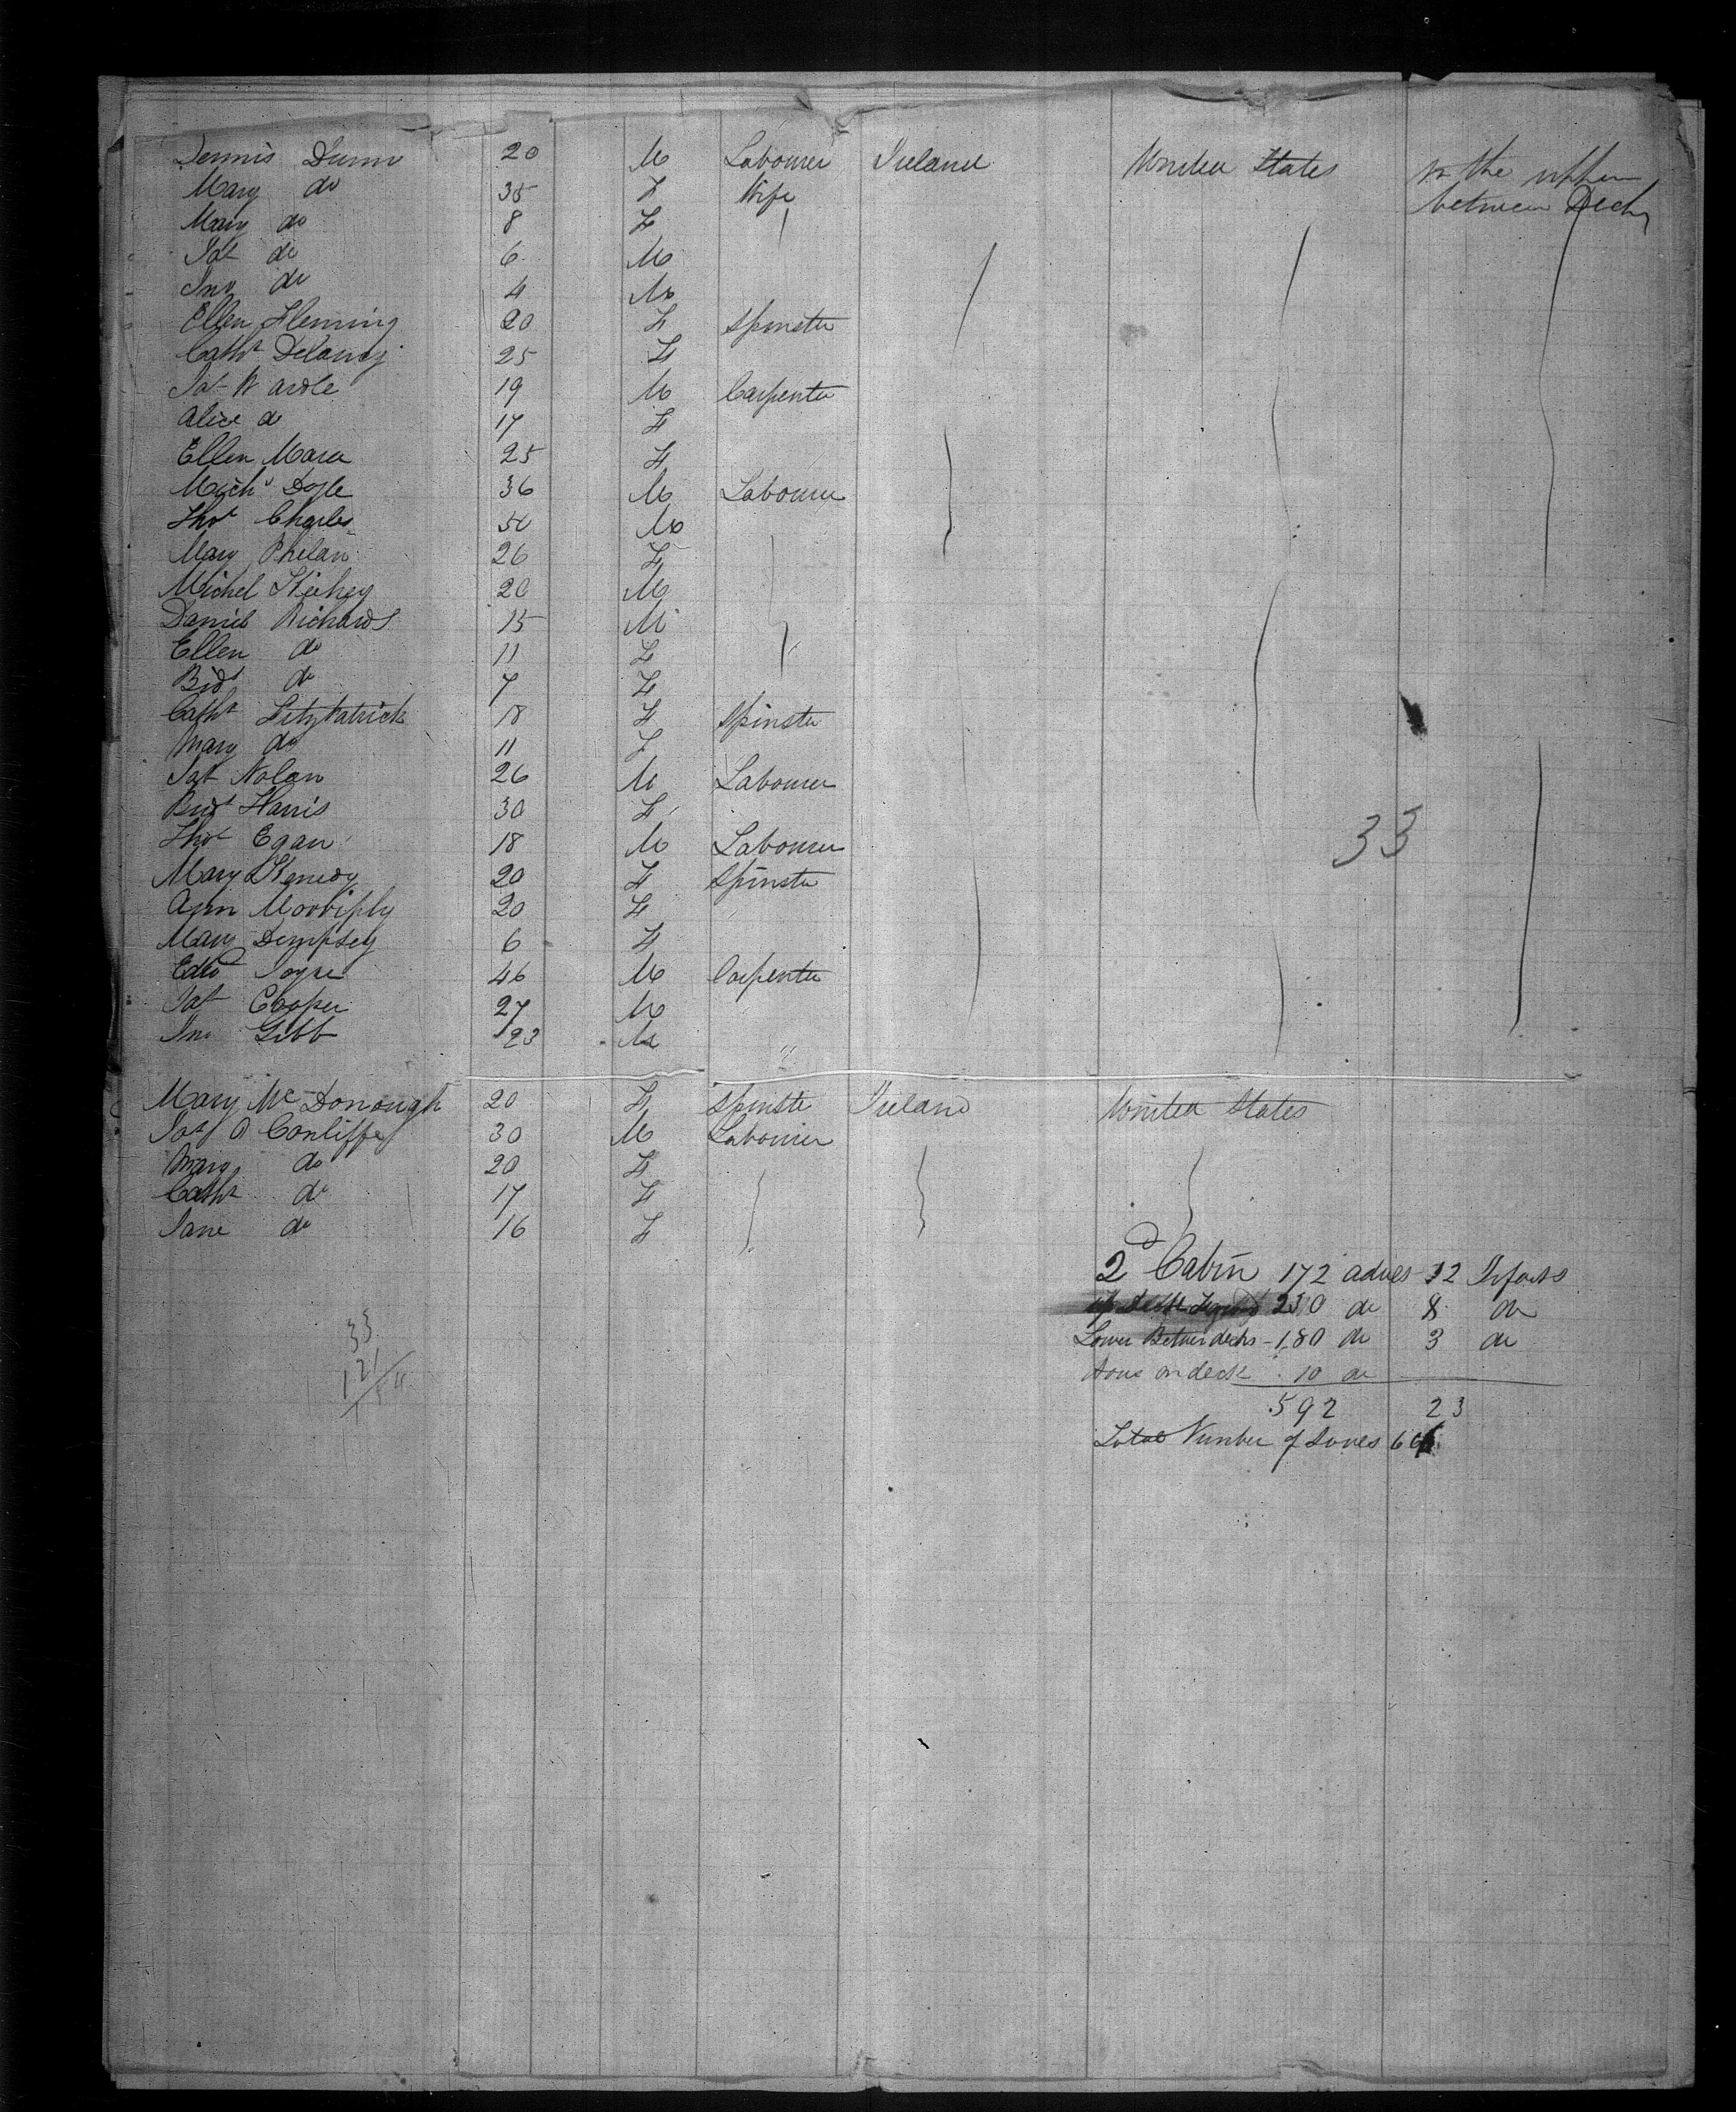 Dennis Dunn 20 M Labourer Ireland United States In the upper
Mary do 35 F Wife between Decks
Mary do 8 F
Pat do 6 M
Jno do 4 M
Ellen Fleming 20 F Spinster
Cathe Delaney 25 F
Pat Wardle 19 M Carpenter
Alice do 17 F
Ellen Mara 25 F
Michl Doyle 36 M Labourer
Thos Charles 50 M
Mary Phelan 26 F
Michel 20 M
Daniel Richards 15 M
Ellen do 11 F
Bidt do 7 F
Cathe Fitzpatrick 18 F Spinster
Mary do 11 F
Pat Nolan 26 M Labourer
Bridt Harris 30 F
33
Thos Egan 18 M Labourer
Mary 20 F Spinster
Ann 20 F
Mary Dempsey 6 F
Edwd 46 M Carpenter
Pat Cooper 27 M
Jno Gibb 23 M "
Mary McDonough 20 F Spinster Ireland United States
Pat O Conliffe 30 M Labourer
Mary do 20 F
Cathe do 17 F
Jane do 16 F
2d Cabin 172 adults 12 Infants
230 do 8 do
Lower Between decks - 180 do 3 do
House on deck 10 do
592 23
Total Number of Souls
33
121